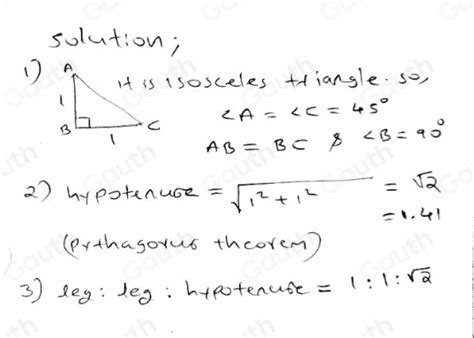 Solution;
1) A It is isosceles triangle. so,
1 ∠A = ∠C = 45°
B 1 C AB = BC & ∠B = 90°
2) hypotenuse = √1² + 1² = √2
= 1.41
(Pythagorus theorem)
3) leg : leg : hypotenuse = 1 : 1 : √2